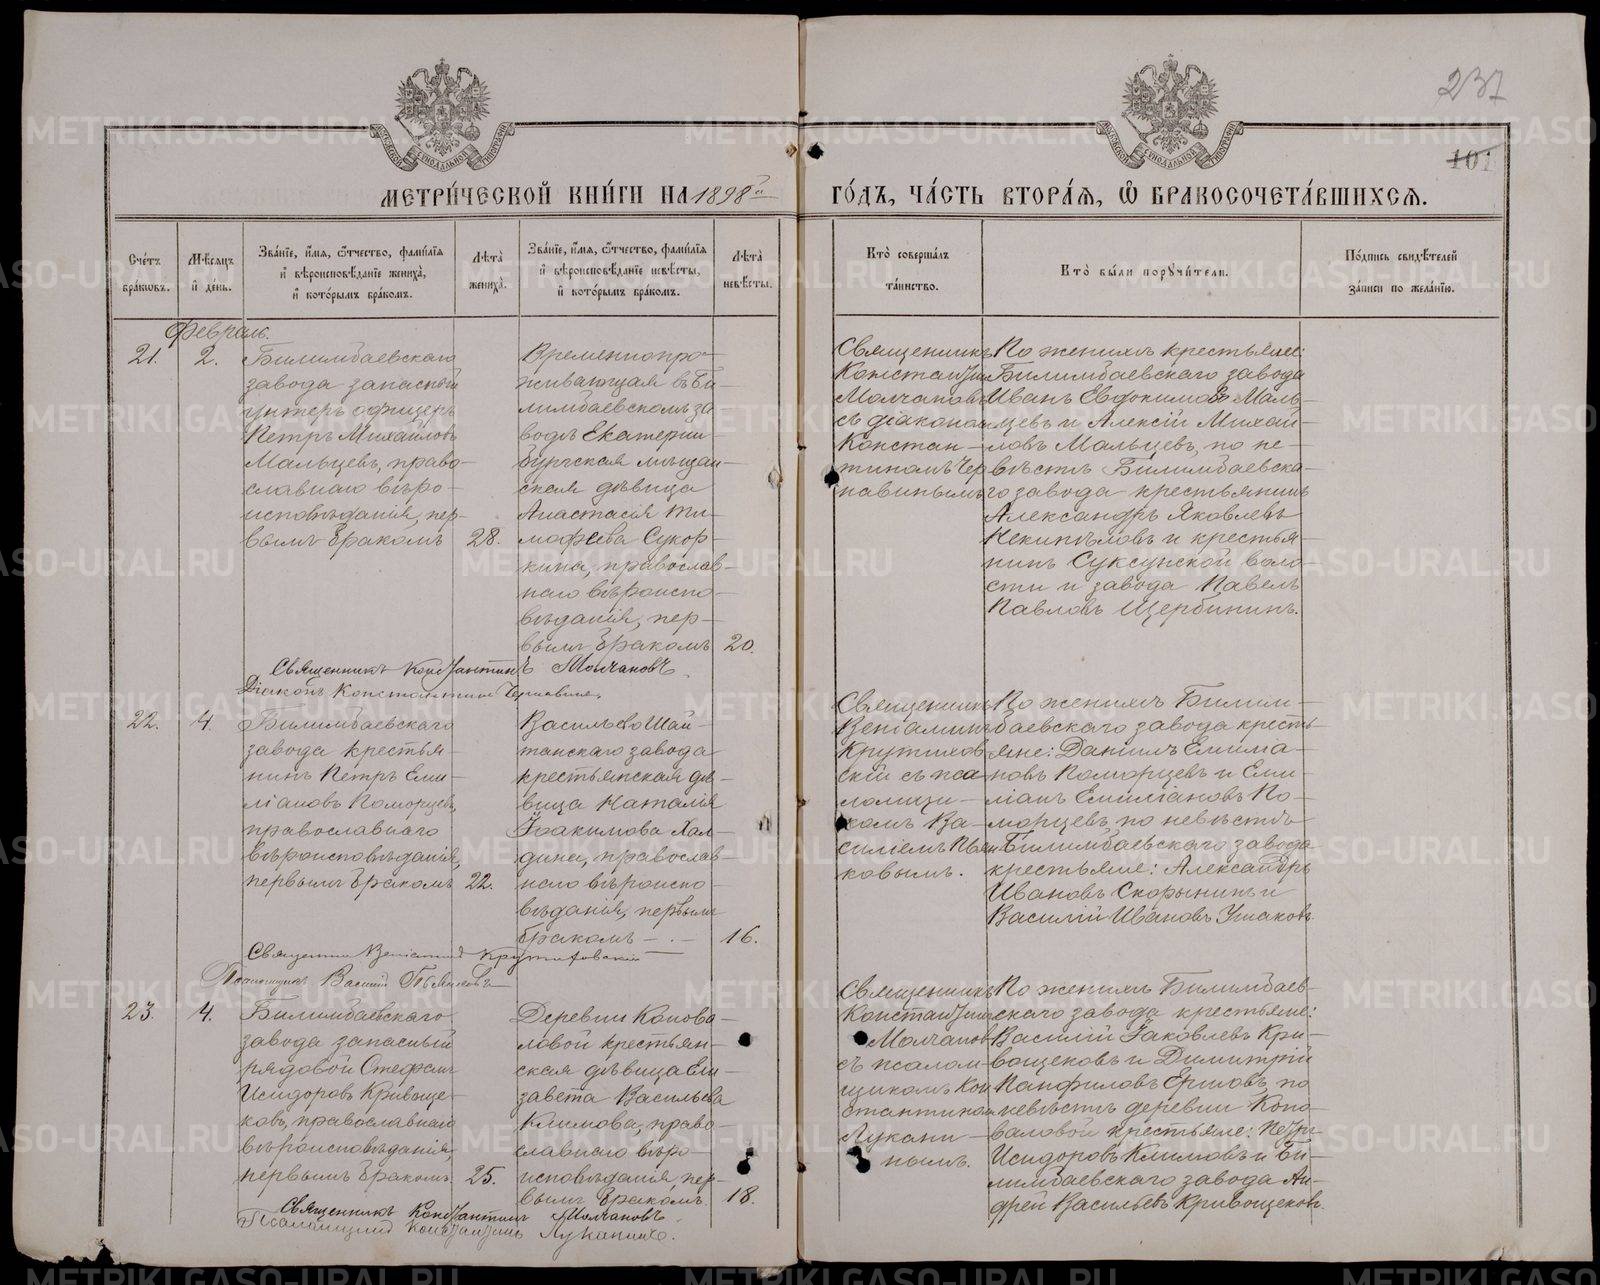 237
101
МЕТРИ́ЧЕСКОЙ КНИ́ГИ НА 1898й
ГО́ДЪ, ЧА́СТЬ ВТОРА́Я, Ѡ БРАКОСОЧЕТА́ВШИХСЯ.
Сче́тъ
бра́ковъ.
Мѣ́сяцъ
и де́нь.
Зва́нїе, и́мя, ѻ́тчество, фами́лїя
и вѣроисповѣ́данїе жениха̀,
и кото́рымъ бра́комъ.
Лѣ́та
жениха̀.
Зва́нїе, и́мя, ѻ́тчество, фами́лїя
и вѣроисповѣ́данїе невѣ́сты,
и кото́рымъ бра́комъ.
Лѣ́та
невѣ́сты.
Кто̀ соверша́лъ
та́инство.
Кто̀ бы́ли поручи́тели.
По́дпись свидѣ́телей
за́писи по жела́нїю.
Февраль.
21.
2.
Билимбаевскаго
завода запасной
унтеръ офицеръ
Петръ Михайловъ
Мальцевъ, право-
славнаго вѣро-
исповѣданія, пер-
вымъ бракомъ
28.
Временно про-
живающая въ Би-
лимбаевскомъ за
водѣ Екатерин-
бургская мѣщан-
ская дѣвица
Анастасія Ти-
мофеева Сукор-
кина, православ-
наго вѣроиспо-
вѣданія, пер-
вымъ бракомъ
20.
Священникъ
Константинъ
Молчановъ
съ діакономъ
Констан-
тиномъ Чер
навинымъ
По женихѣ крестьяне:
Билимбаевскаго завода
Иванъ Евдокимовъ Маль-
цевъ и Алексій Михай-
ловъ Мальцевъ, по не-
вѣстѣ Билимбаевска-
го завода крестьянинъ
Александръ Яковлевъ
Некипѣловъ и крестья-
нинъ Суксунской воло-
сти и завода Павелъ
Павловъ Щербининъ.
Священникъ Константинъ Молчановъ.
Діаконъ Константинъ Чернавинъ.
22.
4.
Билимбаевскаго
завода крестья-
нинъ Петръ Еми-
ліановъ Поморцевъ,
православнаго
вѣроисповѣданія,
первымъ бракомъ
22.
Васильево Шай-
танскаго завода
крестьянская дѣ-
вица Наталія
Іоакимова Хал-
дина, православ-
наго вѣроиспо-
вѣданія, первымъ
бракомъ
16.
Священникъ
Веніаминъ
Крутихов
скій съ пса-
ломщи-
комъ Ва-
силіемъ Пьян
ковымъ.
По женихѣ Билим-
баевскаго завода кресть-
яне: Даніилъ Емилиа-
новъ Поморцевъ и Еми-
ліанъ Емиліановъ По-
морцевъ, по невѣстѣ
Билимбаевскаго завода
крестьяне: Александръ
Ивановъ Скорынинъ и
Василій Ивановъ Ушаковъ
Священникъ Веніаминъ Крутиховскій
Псаломщикъ Василій Пьянковъ
23.
4.
Билимбаевскаго
завода запасный
рядовой Стефанъ
Исидоровъ Кривоще-
ковъ, православнаго
вѣроисповѣданія,
первымъ бракомъ.
25.
Деревни Конова-
ловой крестьян-
ская дѣвица Ели-
завета Васильева
Климова, право-
славнаго вѣро-
исповѣданія, пер-
вымъ бракомъ.
18.
Священникъ
Константинъ
Молчановъ
съ псалом-
щикомъ Кон
стантиномъ
Лукани-
нымъ.
По женихѣ Билимбаев-
скаго завода крестьяне:
Василій Іаковлевъ Кри-
вощековъ и Димитрій
Панфиловъ Ершовъ, по
невѣстѣ деревни Коно-
валовой крестьяне: Петръ
Исидоровъ Климовъ и Би-
лимбаевскаго завода Ан-
дрей Васильевъ Кривощековъ.
Священникъ Константинъ Молчановъ.
Псаломщикъ Константинъ Луканинъ.